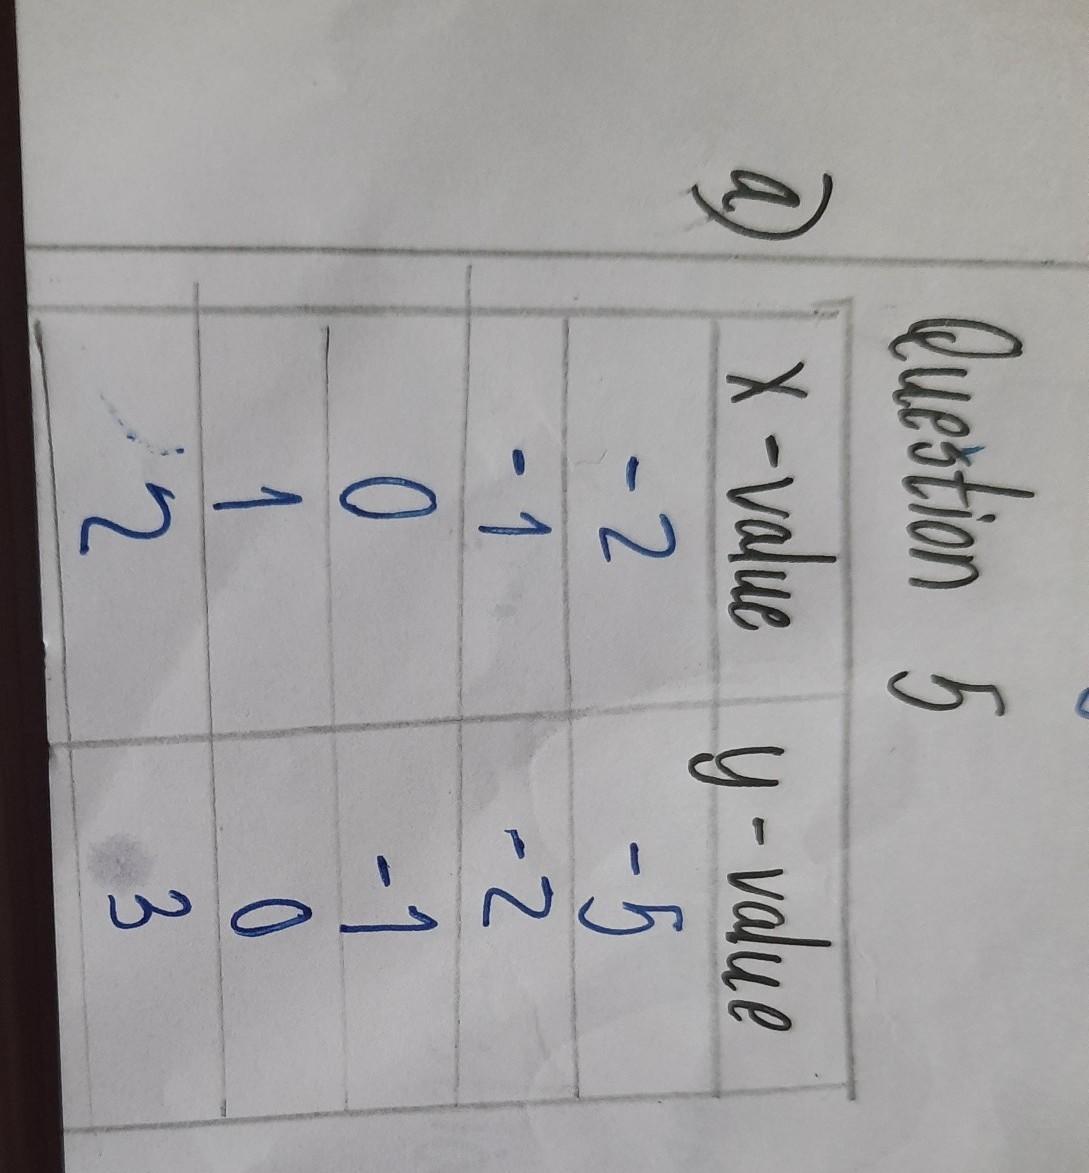 Question 5
a)
x - value y - value
-2 -5
-1 -2
0 -1
1 0
2 3